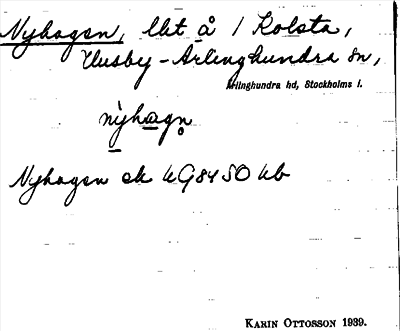 Nyhagen, lht å 1 Kolsta,
Husby-Ärlinghundra sn,
Ärlinghundra hd, Stockholms l.
nỳhagn̥
Nyhagen ek kG84SO kb
KARIN OTTOSSON 1939.